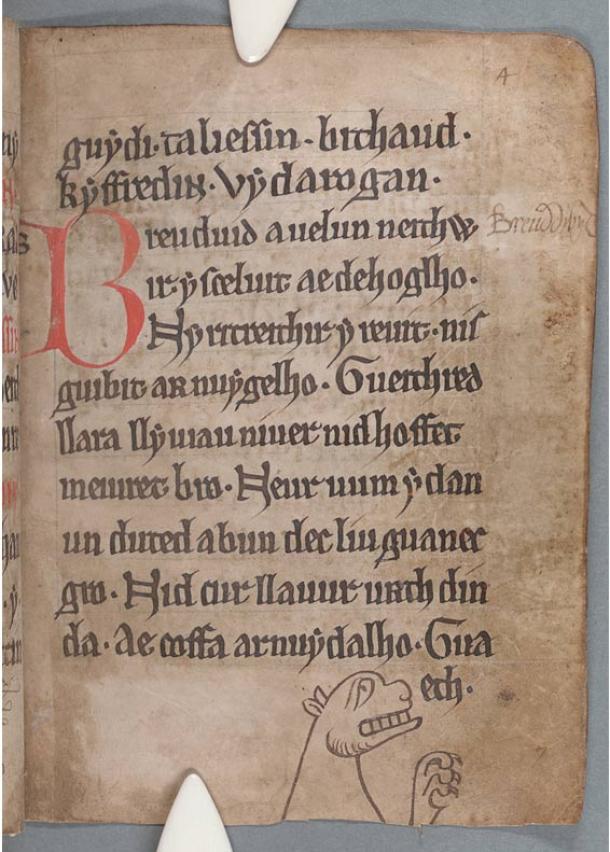 4
guẏdi· taliessin· bithaud·
kẏffredin· Vẏ darogan·
Breuduid a uelun neithw Breuddwyd
ir ẏ sceluit ae dehoglho·
Nẏ ritreithir ẏ reuit· nis
guibit ar nuẏ gelho· Gueithred
llara llẏuiau niuer nid hoffet
meiuret bro· Neur uum ẏ dan
un duted a bun dec liu guanec
gro· Nid cur llauur urth din
da· Ae coffa ar nuẏ dalho· Gua
ech·